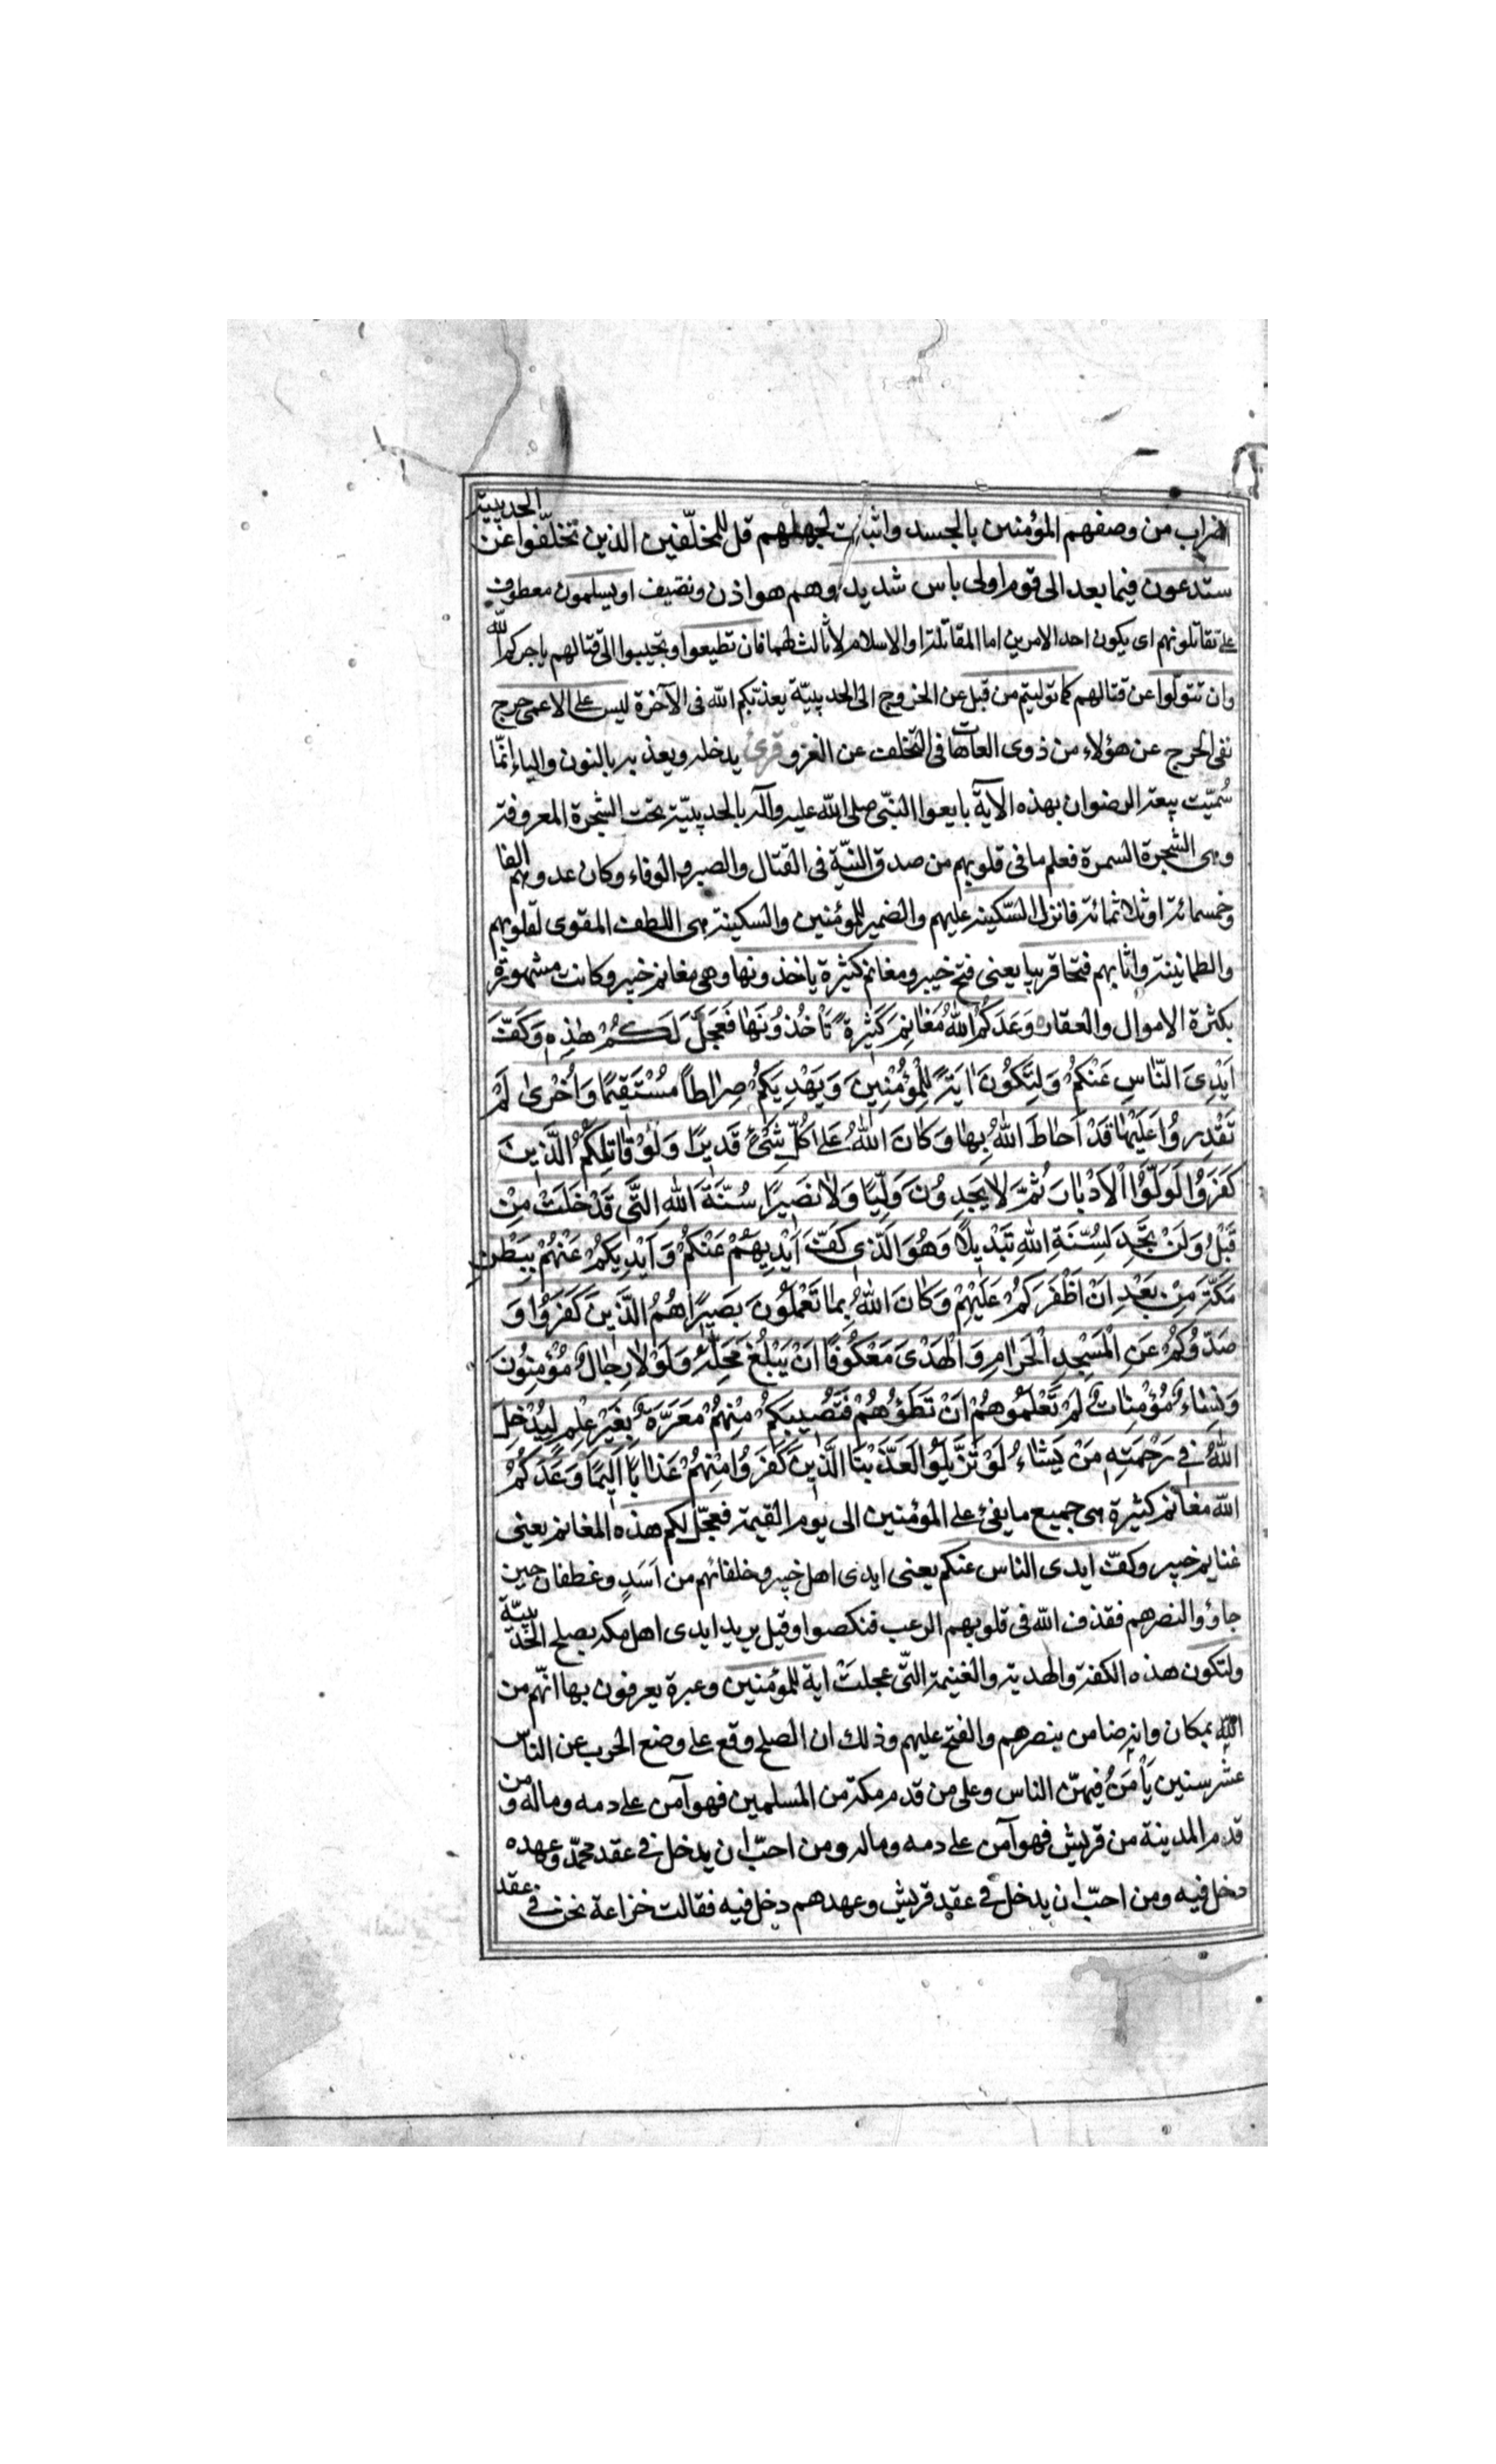 اضراب من وصفهم المؤمنين بالحسد واثبات لجهلهم قل للمخلّفين الذين تخلّفوا عن الحديبية
ستدعون فيما بعد الى قوم اولى باس شديد وهم هوازن وثقيف او يسلمون معطوف
على تقاتلونهم اى يكون احد الامرين اما المقاتلة او الاسلام لا ثالث لهما فان تطيعوا وتجيبوا الى قتالهم ياجركم الله
وان تتولّوا عن قتالهم كما توليتم من قبل عن الخروج الى الحديبيّة يعذّبكم الله فى الآخرة ليس على الاعمى حرج
نفى الحرج عن هؤلاء من ذوى العاهات فى التخلف عن الغزو قرئ يدخله ويعذبه بالنون والياء انّما
سُمّيت بيعة الرضوان بهذه الآية بايعوا النبّى صلى الله عليه وآله بالحديبيّة تحت الشجرة المعروفة
وهى الشجرة السمرة فعلم ما فى قلوبهم من صدق النيّة فى القتال والصبر والوفاء وكان عددهم الفا
وخمسمائة او ثلاثمائة فانزل السّكينة عليهم والضمير للمؤمنين والسكينة هى اللطف المقوى لقلوبهم
والطمانينة واثابهم فتحا قريبا يعنى فتح خيبر ومغانم كثيرة ياخذونها وهى مغانم خيبر وكانت مشهورة
بكثرة الاموال والعقار وَعَدَكُمُ اللهُ مَغانِمَ كَثيرَةً تَأْخُذُونَها فَعَجَّلَ لَكُمْ هٰذِهِ وَكَفَّ
اَيْدِىَ النّاسِ عَنْكُمْ وَلِتَكُونَ ايَةً لِلْمُؤْمِنينَ وَيَهْدِيَكُمْ صِراطاً مُسْتَقيمًا وَاُخْرى لَمْ
تَقْدِرُوا عَلَيْها قَدْ اَحاطَ اللهُ بِها وَكانَ اللهُ عَلى كُلِّ شَىْءٍ قَديرًا وَلَوْ قاتَلَكُمُ الَّذينَ
كَفَرُوا لَوَلَّوُا الْاَدْبارَ ثُمَّ لا يَجِدُونَ وَلِيًّا وَلا نَصيرًا سُنَّةَ اللهِ الَّتى قَدْ خَلَتْ مِنْ
قَبْلُ وَلَنْ تَجِدَ لِسُنَّةِ اللهِ تَبْديلاً وَهُوَ الَّذى كَفَّ اَيْدِيَهُمْ عَنْكُمْ وَاَيْدِيَكُمْ عَنْهُمْ بِبَطْنِ
مَكَّةَ مِنْ بَعْدِ اَنْ اَظْفَرَكُمْ عَلَيْهِمْ وَكانَ اللهُ بِما تَعْمَلُونَ بَصيرًا هُمُ الَّذينَ كَفَرُوا وَ
صَدُّوكُمْ عَنِ الْمَسْجِدِ الْحَرامِ وَالْهَدْىَ مَعْكُوفًا اَنْ يَبْلُغَ مَحِلَّهُ وَلَوْلا رِجالٌ مُؤْمِنُونَ
وَنِساءٌ مُؤْمِناتٌ لَمْ تَعْلَمُوهُمْ اَنْ تَطَؤُهُمْ فَتُصيبَكُمْ مِنْهُمْ مَعَرَّةٌ بِغَيْرِ عِلْمٍ لِيُدْخِلَ
اللهُ فى رَحْمَتِهِ مَنْ يَشاءُ لَوْ تَزَيَّلُوا لَعَذَّبْنَا الَّذينَ كَفَرُوا مِنْهُمْ عَذابًا اَليمًا وَعَدَكُمُ
الله مغانم كثيرة هى جميع ما يفئ على المؤمنين الى يوم القيمة فعجّل لكم هذه المغانم يعنى
غنايم خيبر وكفّ ايدى الناس عنكم يعنى ايدى اهل خيبر وخلفائهم من اَسَدٍ وغطفان حين
جاؤوا لنصرهم فقذف الله فى قلوبهم الرعب فنكصوا وقيل يريد ايدى اهل مكه بصلح الحديبيّة
ولتكون هذه الكفة والهدية والغنيمة التّى عجلت اية للمؤمنين وعبرة يعرفون بها انّهم من
الله بمكان وانه ضامن ينصرهم والفتح عليهم وذلك ان الصلح وقع على وضع الحرب عن الناس
عشر سنين يأمَنُ فيهنّ الناس وعلى من قدم مكة من المسلمين فهو آمن على دمه وماله ومن
قدم المدينة من قريش فهو آمن على دمه وماله ومن احبّ ان يدخل فى عقد محمّد وعهده
دخل فيه ومن احبّ ان يدخل فى عقد قريش وعهدهم دخل فيه فقالت خزاعة نحن فى عقد